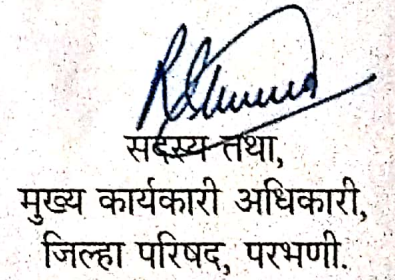 सदस्य तथा,
मुख्य कार्यकारी अधिकारी,
जिल्हा परिषद, परभणी.